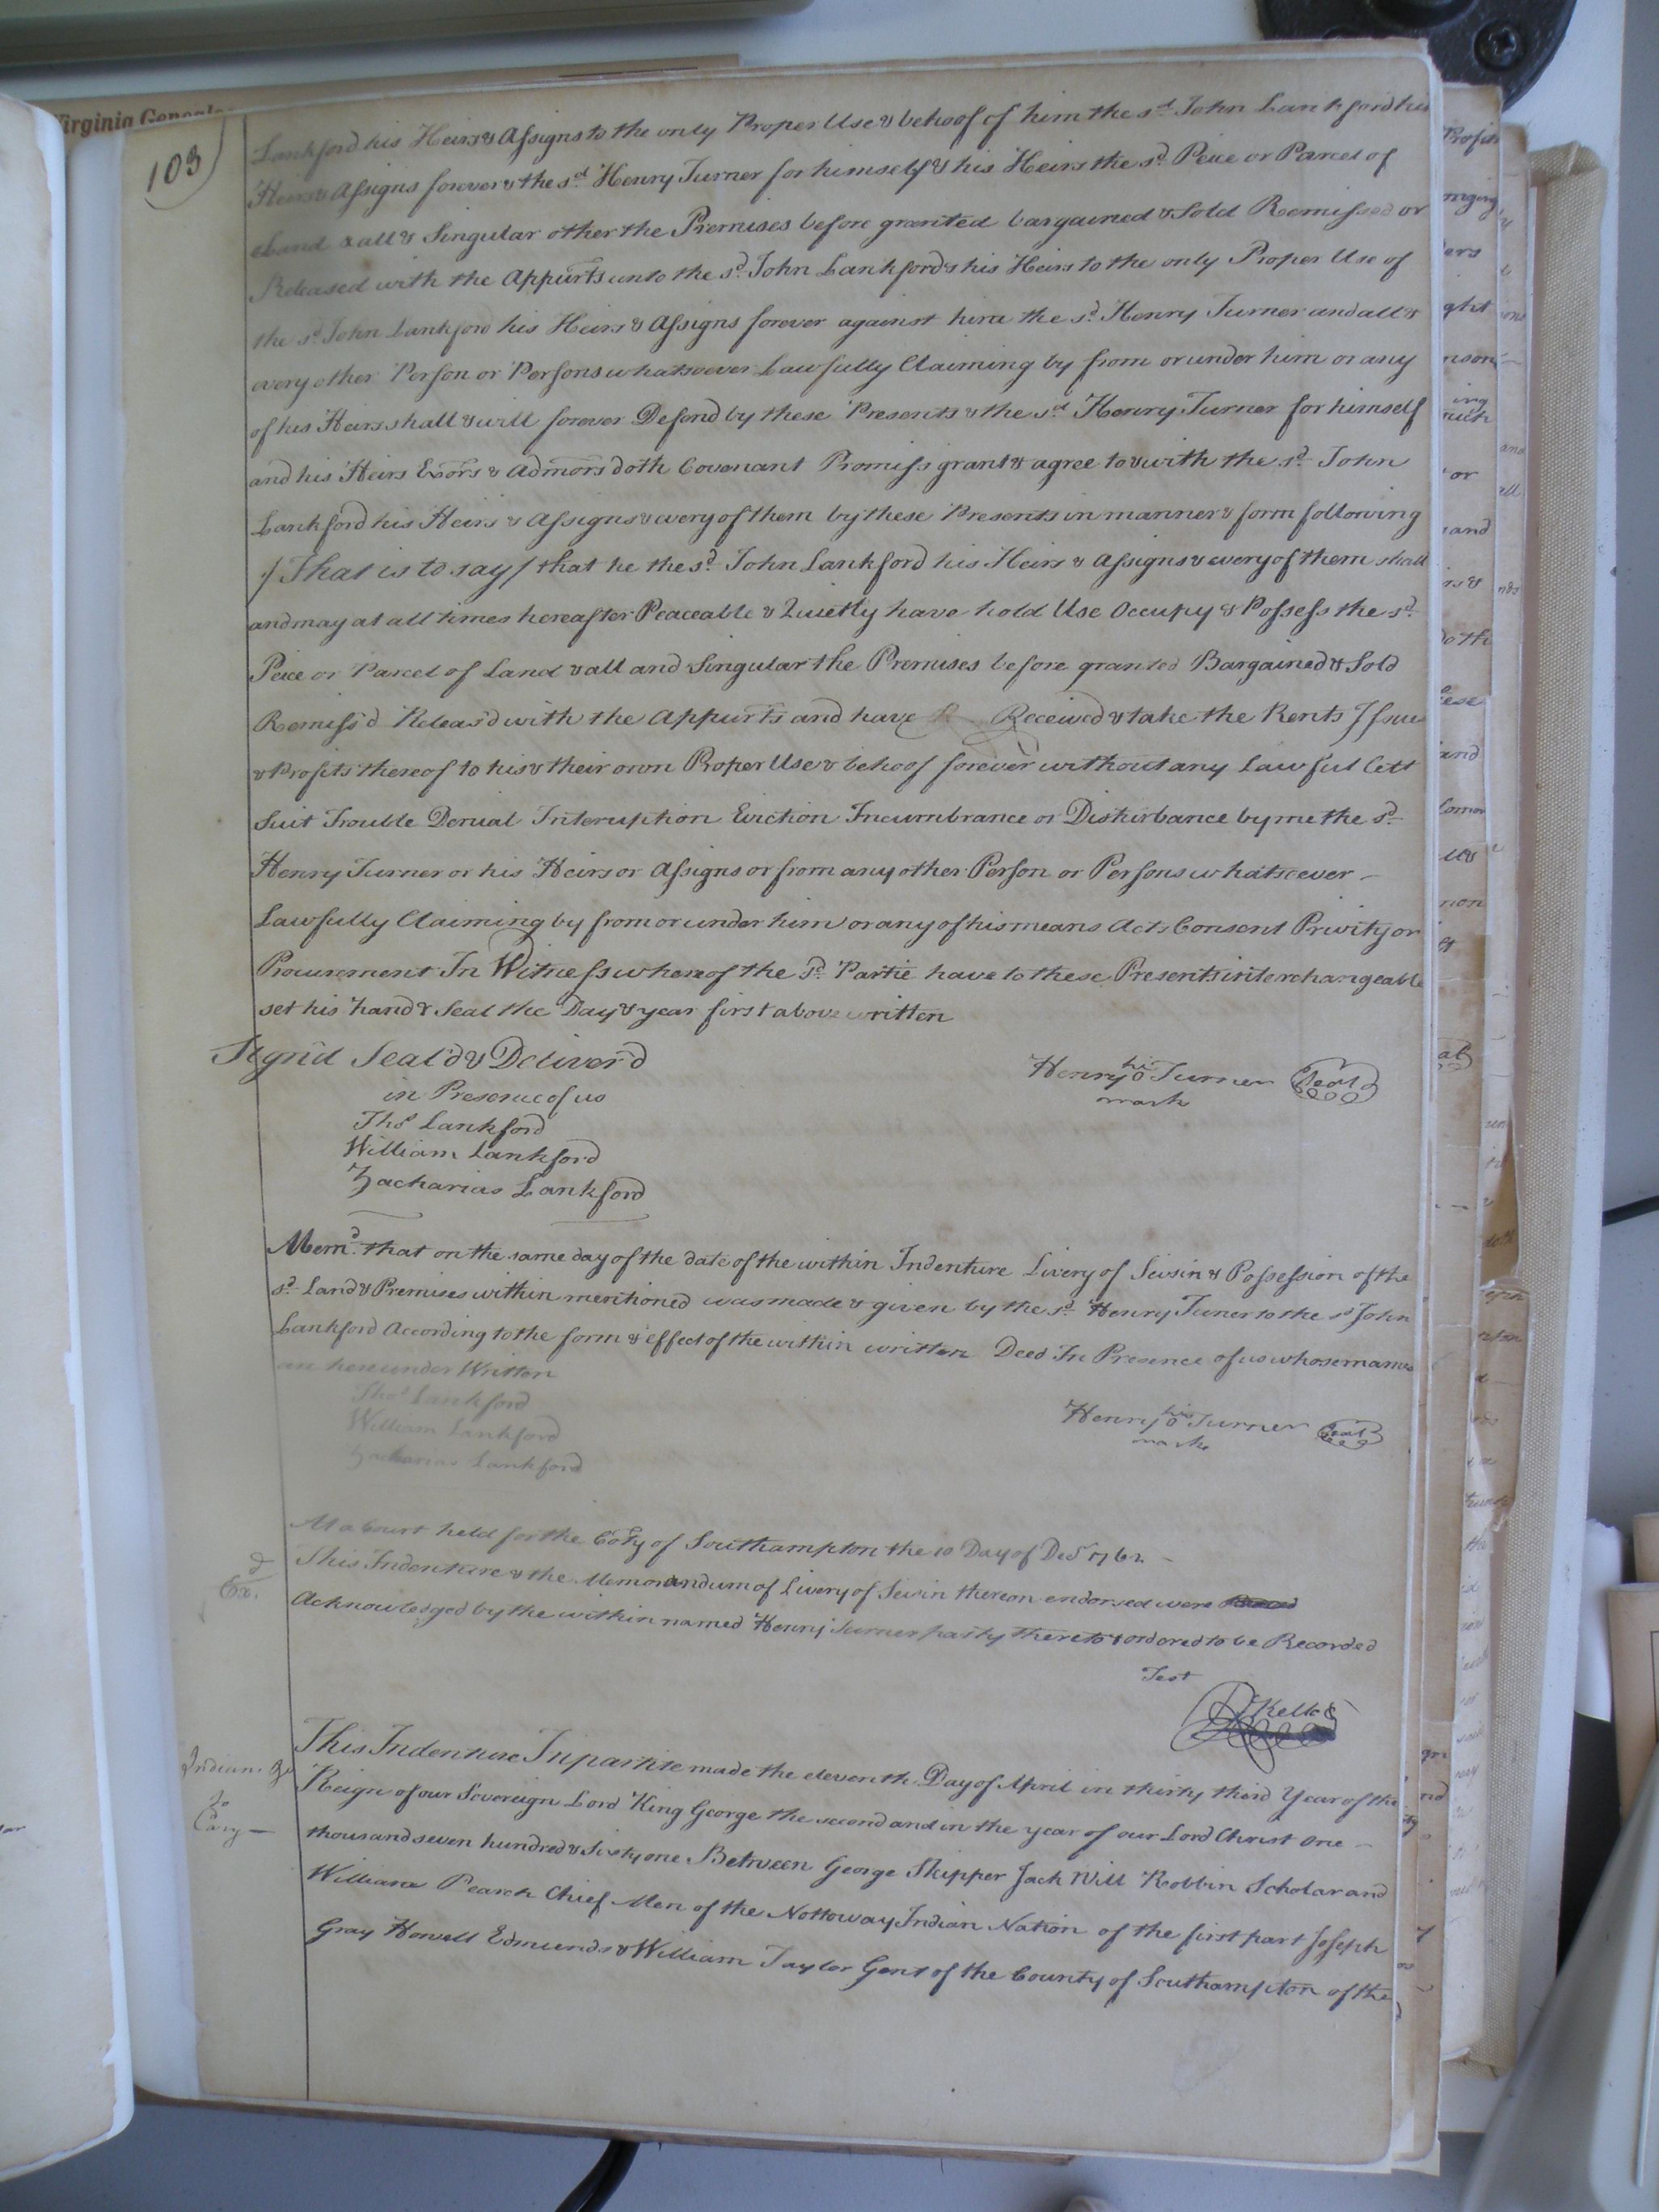 Virginia Genealo
103
Lankford his Heirs & Assigns to the only Proper Use & behoof of him the sd. John Lankford his
Heirs & Assigns forever & the sd. Henry Turner for himself & his Heirs the sd. Peice or Parcel of
Land & all & Singular other the Premises before granted bargained & Sold Remissed or
Released with the Appurts unto the sd. John Lankford & his Heirs to the only Proper Use of
the sd. John Lankford his Heirs & Assigns forever against him the sd. Henry Turner and all &
every other Person or Persons whatsoever Lawfully Claiming by from or under him or any
of his Heirs shall & will forever Defend by these Presents & the sd. Henry Turner for himself
and his Heirs Exors & Admors doth Covenant Promiss grant & agree to & with the sd. John
Lankford his Heirs & Assigns & every of them by these Presents in manner & form following
/ That is to say / that he the sd. John Lankford his Heirs & Assigns & every of them shall
and may at all times hereafter Peaceable & Quietly have hold Use Occupy & Possess the sd.
Peice or Parcel of Land & all and Singular the Premises before granted Bargained & Sold
Remiss'd Releas'd with the Appurts and have Received & take the Rents Issues
& Profits thereof to his & their own Proper Use & behoof forever without any Lawful Lett
Suit Trouble Denial Interuption Eviction Incumbrance or Disturbance by me the sd.
Henry Turner or his Heirs or Assigns or from any other Person or Persons whatsoever
Lawfully Claiming by from or under him or any of his means Acts Consent Privity or
Procurement In Witness whereof the sd. Partie have to these Presents interchangeable
set his hand & Seal the Day & year first above written
Sign'd Seal'd & Deliver'd
in Presence of us
Henry his O Turner Seal
mark
Thos Lankford
William Lankford
Zacharias Lankford
Memd. that on the same day of the date of the within Indenture Livery of Seisin & Possession of the
sd. Land & Premises within mentioned was made & given by the sd. Henry Turner to the sd John
Lankford According to the form & effect of the within written Deed In Presence of us whose names
are hereunder Written
Thos Lankford
William Lankford
Zacharias Lankford
Henry his O Turner Seal
mark
At a Court held for the Coty of Southampton the 10 Day of Decr 1762
Exd.
This Indenture & the Memorandum of Livery of Seisin thereon endorsed were
Acknowledged by the within named Henry Turner party thereto & ordered to be Recorded
Test
R Kello C
Indian. &c
to
Cary
This Indenture Tripartite made the eleventh Day of April in thirty third Year of the
Reign of our Sovereign Lord King George the second and in the year of our Lord Christ one
thousand seven hundred & Sixty one Between George Skipper Jack Will Robbin Scholar and
William Pearch Chief Men of the Nottoway Indian Nation of the first part Joseph
Gray Howell Edmunds & William Taylor Gent of the County of Southampton of the